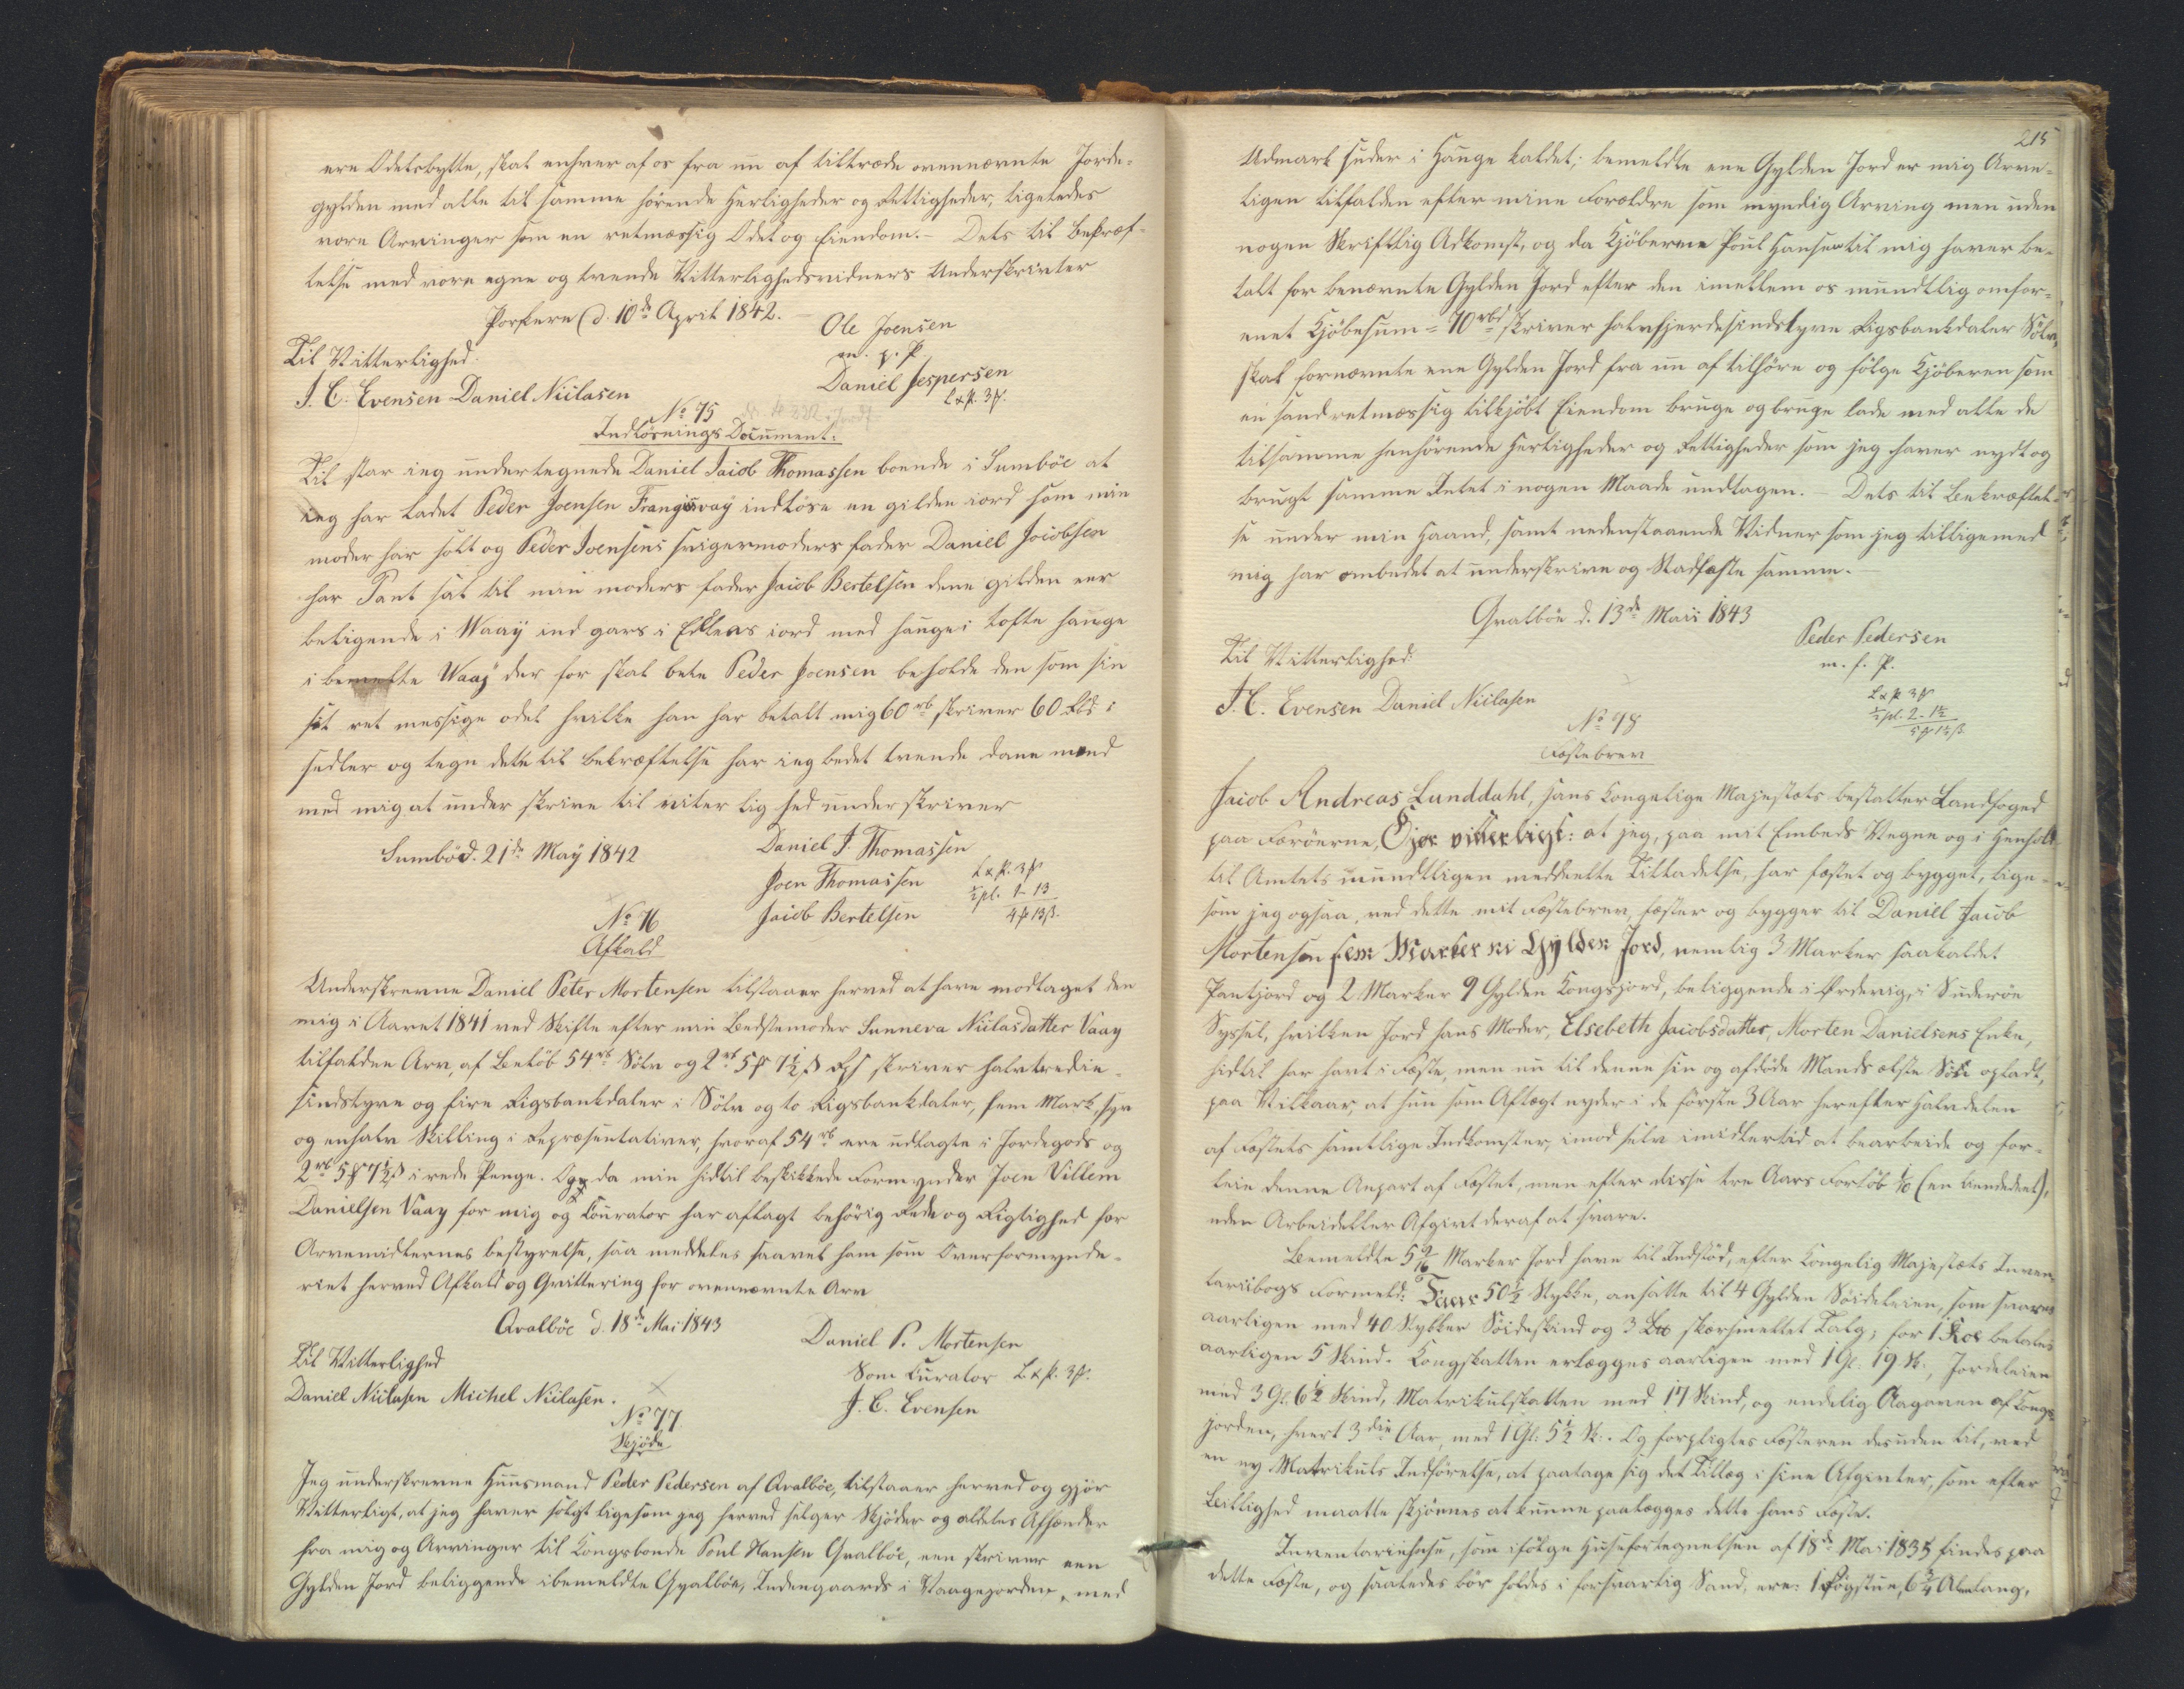 ere Odelsbytte, skal enhver af os fra nu af tiltræde ovennævnte Jorde-
gylden med alle til samme hørende Herligheder og Rettigheder, ligeledes
vore Arvinger som en retmæssig Odel og Eiendom. - Dets til Bekræf-
telse med vore egne og tvende Vitterlighedsvidners Underskrivter
Porkere d. 10de April 1842.
Ole Joensen
m. p. P.
Til Vitterlighed:
Daniel Jespersen
J. C. Evensen Daniel Niclasen
L & P. 3 ß.
No 75
Indløsnings Document:
Til star ieg undertegnede Daniel Jacob Thomassen boende i Sumböe at
ieg har ladet Peder Joensen Frangisvaÿ indløse en gilden iord som min
moder har solt og Peder Joensens svigermoders fader Daniel Jocobsen
har Pant sat til min moders fader Jacob Bertelsen dene gilden eer
beligende i Waaÿ ind gars i Edleas iord med hauge i tofte hauge
i bemelte Waaÿ der for skal bete Peder Joensen beholde den som sin
sit ret messige odel hvilke han har betalt mig 60 rb skriver 60 Rbd i
sedler og tegn dete til bekræftelse har ieg bedet tvende dane mend
med mig at under skrive til viter lig hed under skriver
Sumbö d. 21de Maÿ 1842
Daniel J. Thomassen
Joen Thomassen
L & P. 3 ß
½ pl. 1 - 13
Jacob Bertelsen
4 ß 13 ß.
No 76
Afkald
Underskrevne Daniel Peter Mortensen tilstaaer herved at have modtaget den
mig i Aaret 1841 ved Skifte efter min Bedstemoder Sunneva Niclasdatter Vaag
tilfaldne Arv, af Beløb 54 rb Sölv og 2 rb 5 ß 7½ ß skriver halvtredie-
sindstyve og fire Rigsbankdaler i Sölv og to Rigsbankdaler, fem Mark, syv
og en halv Skilling i Repræsentativer, hvoraf 54 rb ere udlagte i Jordegods og
2 rb 5 ß 7½ ß i rede Penge. Og da min hidtil beskikkede Formynder Joen Villem
Danielsen Vaag for mig og Courator har aflagt behörig Rede og Rigtighed for
Arvemidlernes bestyrelse, saa meddeles saavel ham som Overformynde-
riet herved Afkald og Qvittering for ovennævnte Arv
Qvalböe d. 18de Mai 1843
Daniel P. Mortensen
Til Vitterlighed
Som Curator L & P. 3 ß.
Daniel Niclasen Michel Niclasen.
J. C. Evensen
No 77
Skjöde
Jeg underskrevne Huusmand Peder Pedersen af Qvalböe, tilstaaer herved og gjör
Vitterligt, at jeg haver solgt ligesom jeg herved selger Skjöder og aldeles Afhænder
fra mig og Arvinger til Kongsbonde Poul Hansen Qvalböe, een skriver een
Gylden Jord beliggende i bemeldte Qvalböe, Indengaards i Vaagejorden, med
215
Udmark suder i Hauge kaldet; bemeldte ene Gylden Jord er mig Arve-
ligen tilfalden efter mine Forældre som myndig Arving men uden
nogen Skriftlig Adkomst, og da Kjöberen Poul Hansen til mig haver be-
talt for benævnte Gylden Jord efter den imellem os mundtlig omfor-
enet Kjöbesum = 70 rbd skriver halvfjerdesindstyve Rigsbankdaler Sölv,
skal fornævnte ene Gylden Jord fra nu af tilhöre og fölge Kjöberen som
en sand retmæssig tilkjöbt Eiendom bruge og bruge lade med alle de
til samme henhörende Herligheder og Rettigheder som jeg haver nydt og
brugt samme Intet i nogen Maade undtagen. - Dets til Bekræftel-
se under min Haand, samt nedenstaaende Vidner som jeg tilligemed
mig har ombedet at underskrive og Stadfæste samme.
Qvalböe d. 13de Maii 1843
Peder Pedersen
m. f. P.
Til Vitterlighed:
J. C. Evensen Daniel Niclasen
L & P 3 ß
½ pl. 2 - 1½
5 ß 1½ ß
No 78
Fæstebrev
Jacob Andreas Lunddahl, Hans Kongelige Majestæts bestalter Landfoged
paa Færöerne, Gjör vitterligt: at jeg, paa mit Embeds Vegne og i Henhold
til Amtets mundtligen meddeelte Tilladelse, har fæstet og bygget, lige-
som jeg ogsaa, ved dette mit Fæstebrev, fæster og bygger til Daniel Jacob
Mortensen fem Marker ni Gylden Jord, nemlig 3 Marker saakaldet
Pantjord og 2 Marker 9 Gylden Kongsjord, beliggende i Ørdevig, i Suderöe
Syssel, hvilken Jord hans Moder, Elsebeth Jacobsdatter, Morten Danielsens Enke,
hidtil har havt i Fæste, men nu til denne sin og afdöde Mands ælste Sön opladt,
paa Vilkaar, at hun som Aftægt nyder i de förste 3 Aar herefter Halvdelen
af Fæstets samtlige Indkomster, imod selv imidlertid at bearbeide og for-
leie denne Anpart af Fæstet, men efter disse tre Aars Forløb 1/10 (en tiendedeel),
uden Arbeid eller Afgivt deraf at svare.
Bemeldte 5 9/16 Marker Jord have til Indstöd, efter Kongelig Majestæts Inven-
tariibogs Formeld: Faar 50½ Stykke, ansatte til 4 Gylden Söideleien, som svares
aarligen med 40 Stykker Söideskind og 3 skærsmeltet Talg; for 1 Koe betales
aarligen 5 Skind. Kongskatten erlægges aarligen med 1 Gl. 19 Sk., Jordeleien
med 3 Gl. 6½ Skind, Matrikulskatten med 17 Skind, og endelig Aagaven af Kongs-
jorden, hvert 3die Aar, med 1 Gl: 5½ Sk:. Og forpligtes Fæsteren desuden til, ved
en ny Matrikuls Indførelse, at paatage sig det Tillæg i sine Afgivter, som efter
Beilighed maatte skjönnes at kunne paalægges dette hans Fæste.
Inventariehuse, som ifölge Husefortegnelsen af 18de Mai 1835 findes paa
dette Fæste, og saaledes bör holdes i forsvarlig Stand, ere: 1 Rögstue, 6¾ Alen lang,